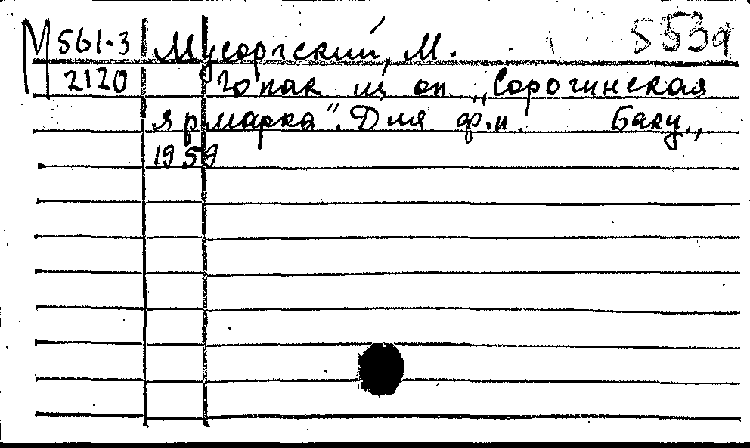 М 561-3 Мусоргский, М. 5539
2120 Гопак из оп „Сорочинская
ярмарка". Для ф.п. Баку,
1959